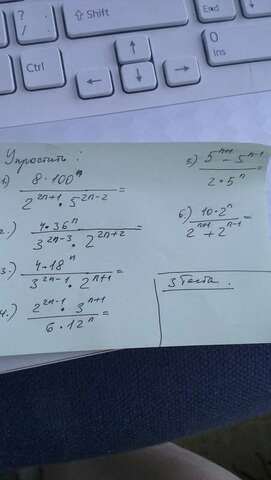 ?
/ 7
Ctrl
⇧Shift
↑
←
↓
→
0
Ins
Упростить:
1) 8·100^n / 2^(2n+1)·5^(2n-2) =
2.) 4·36^n / 3^(2n-3)·2^(2n+2) =
3.) 4·18^n / 3^(2n-1)·2^(n+1) =
4.) 2^(2n-1)·3^(n+1) / 6·12^n =
5) 5^(n+1) - 5^(n-1) / 2·5^n =
6.) 10·2^n / 2^(n+1) + 2^(n-1) =
3 Теста.